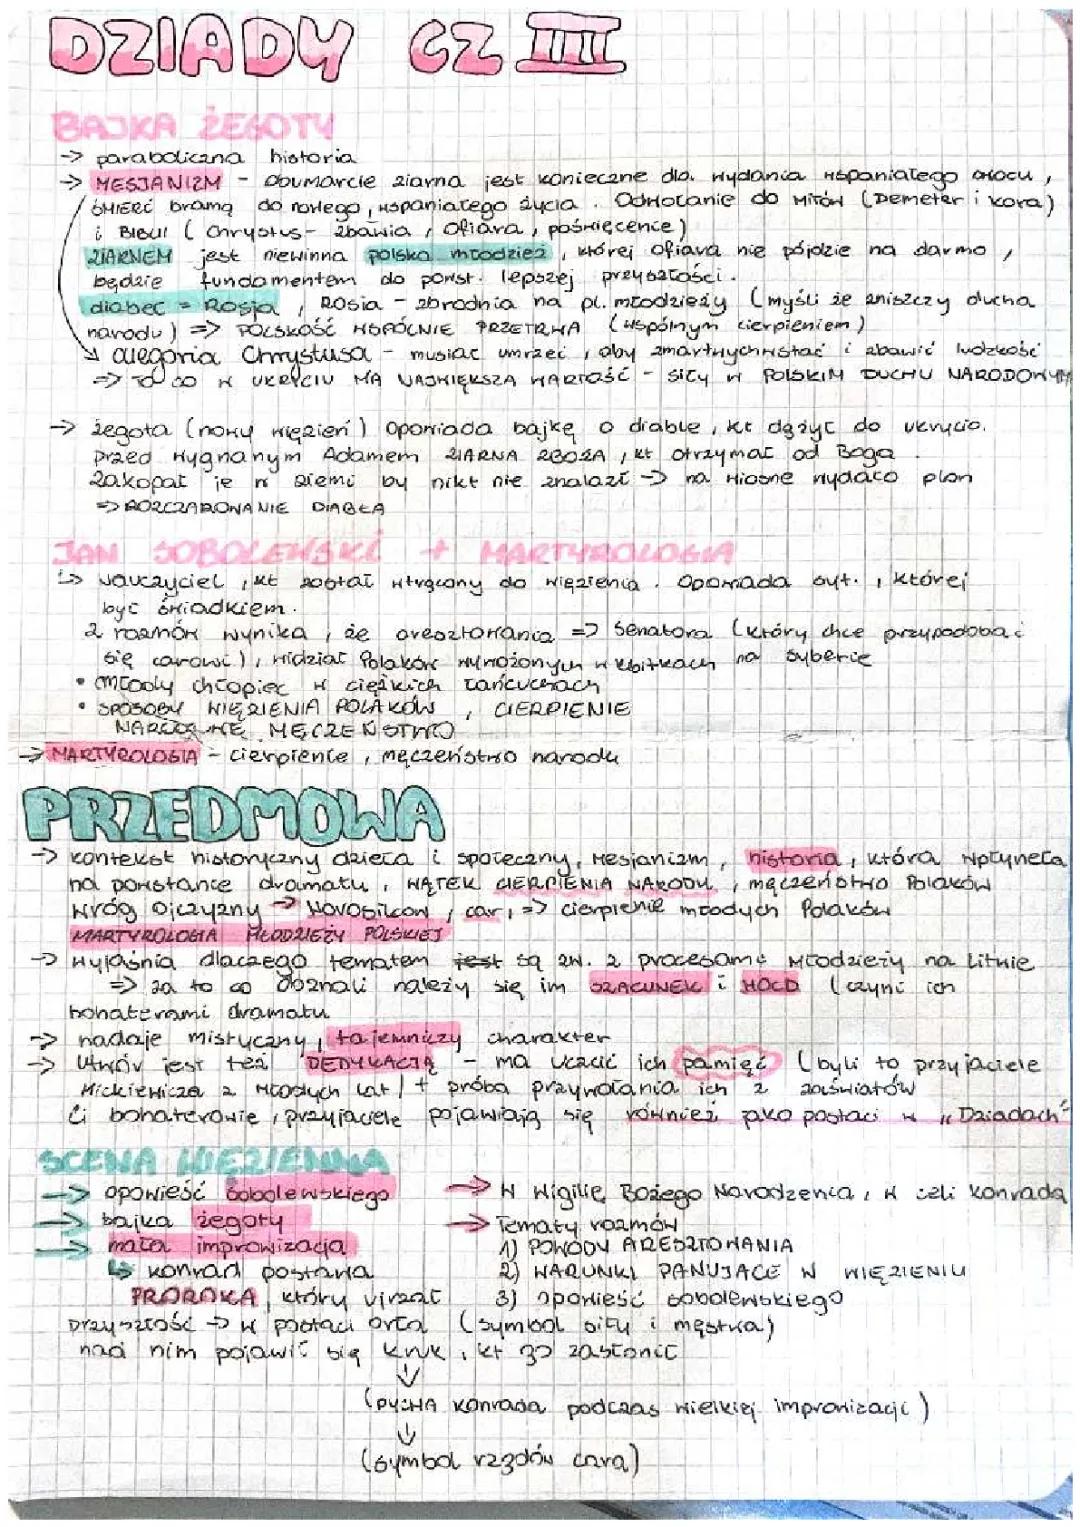 DZIADY CZ III
BAJKA ŻEGOTY
→ paraboliczna historia
→ MESJANIZM - obumarcie ziarna jest konieczne dla wydania wspaniałego owocu,
ŚMIERĆ bramą do nowego, wspaniałego życia. Odwołanie do mitów (Demeter i Kora)
i BIBLII (Chrystus - zbawia, ofiara, poświęcenie)
ZIARNEM jest niewinna polska młodzież, której ofiara nie pójdzie na darmo,
będzie fundamentem do powst. lepszej przyszłości.
diabeł = Rosja, Rosja - zbrodnia na pl. młodzieży (myśli że zniszczy ducha
narodu) => POLSKOŚĆ WSPÓLNIE PRZETRWA (wspólnym cierpieniem)
↘ alegoria Chrystusa - musiał umrzeć, aby zmartwychwstać i zbawić ludzkość
=> TO CO W UKRYCIU MA NAJWIĘKSZĄ WARTOŚĆ - siły w POLSKIM DUCHU NARODOWYM
→ Żegota (nowy więzień) opowiada bajkę o diable, kt dążył do ukrycia
przed wygnanym Adamem ZIARNA ZBOŻA, kt otrzymał od Boga.
Zakopał je w ziemi by nikt nie znalazł → na wiosnę wydało plon
=> ROZCZAROWANIE DIABŁA
JAN SOBOLEWSKI + MARTYROLOGIA
↳ nauczyciel, kt został wtrącony do więzienia. Opowiada syt., której
był świadkiem.
Z rozmów wynika, że aresztowania => Senatora (który chce przypodobać
się carowi), widział Polaków wywożonych w kibitkach na Syberię
• młody chłopiec w ciężkich łańcuchach
• SPOSOBY WIĘZIENIA POLAKÓW, CIERPIENIE
NARODOWE, MĘCZEŃSTWO
→ MARTYROLOGIA - cierpienie, męczeństwo narodu
PRZEDMOWA
→ kontekst historyczny dzieła i społeczny, mesjanizm, historia, która wpłynęła
na powstanie dramatu, WĄTEK CIERPIENIA NARODU, męczeństwo Polaków
Wróg Ojczyzny → Novosilcow, car, => cierpienie młodych Polaków
MARTYROLOGIA MŁODZIEŻY POLSKIEJ
→ Wyjaśnia dlaczego tematem jest są zw. z procesami młodzieży na Litwie
=> za to co doznali należy się im SZACUNEK i HOŁD (czyni ich
bohaterami dramatu
→ nadaje mistyczny, tajemniczy charakter
→ Utwór jest też DEDYKACJĄ - ma uczcić ich pamięć (byli to przyjaciele
Mickiewicza z młodych lat) + próba przywołania ich z zaświatów
Ci bohaterowie, przyjaciele pojawiają się również jako postaci w „Dziadach"
SCENA WIĘZIENNA
→ opowieść Sobolewskiego
→ bajka Żegoty
→ mała improwizacja
↳ Konrad postawa
PROROKA, który ujrzał
przyszłość → w postaci orła (symbol siły i męstwa)
nad nim pojawił się kruk, kt go zasłonił
↓
(PYCHA Konrada podczas wielkiej improwizacji)
↓
(symbol rządów cara)
→ W Wigilię Bożego Narodzenia, w celi Konrada
→ Tematy rozmów
1) POWODY ARESZTOWANIA
2) WARUNKI PANUJĄCE W WIĘZIENIU
3) opowieść Sobolewskiego